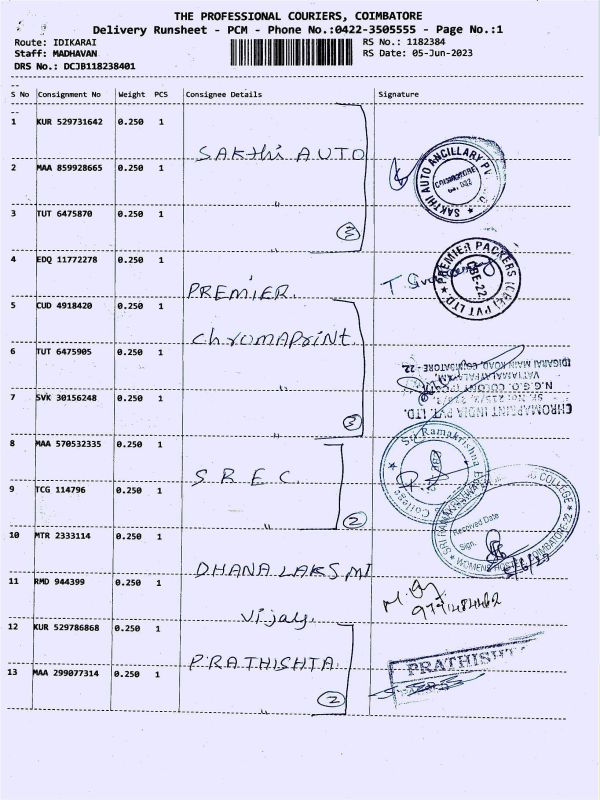 THE PROFESSIONAL COURIERS, COIMBATORE
Delivery Runsheet - PCM - Phone No.:0422-3505555 - Page No.:1
Route: IDIKARAI
RS No.: 1182384
Staff: MADHAVAN
RS Date: 05-Jun-2023
DRS No.: DCJB118238401
S No Consignment No Weight PCS Consignee Details Signature
1 KUR 529731642 0.250 1
SAKthi AUTO
2 MAA 859928665 0.250 1
SAKTHI AUTO ANCILLARY
COIMBATORE
3 TUT 6475870 0.250 1 "
3
4 EDQ 11772278 0.250 1 PREMIER.
PREMIER PACKERS (CBE) PVT LTD.
CBE-22
5 CUD 4918420 0.250 1
ChromAPrint.
6 TUT 6475905 0.250 1
7 SVK 30156248 0.250 1
3
CHROMAPRINT INDIA PVT. LTD.
N.G.O. COLONY
IDIGARAI MAIN ROAD, COIMBATORE - 22.
8 MAA 570532335 0.250 1 S.R.E.C.
Sri Ramakrishna
College
9 TCG 114796 0.250 1 "
2
COLLEGE
COIMBATORE-22
Received Date
Sign.
10 MTR 2333114 0.250 1 DHANALAKSMI
11 RMD 944399 0.250 1
Vijay.
12 KUR 529786868 0.250 1 PRATHISHTA.
PRATHISHT
13 MAA 299077314 0.250 1 "
2